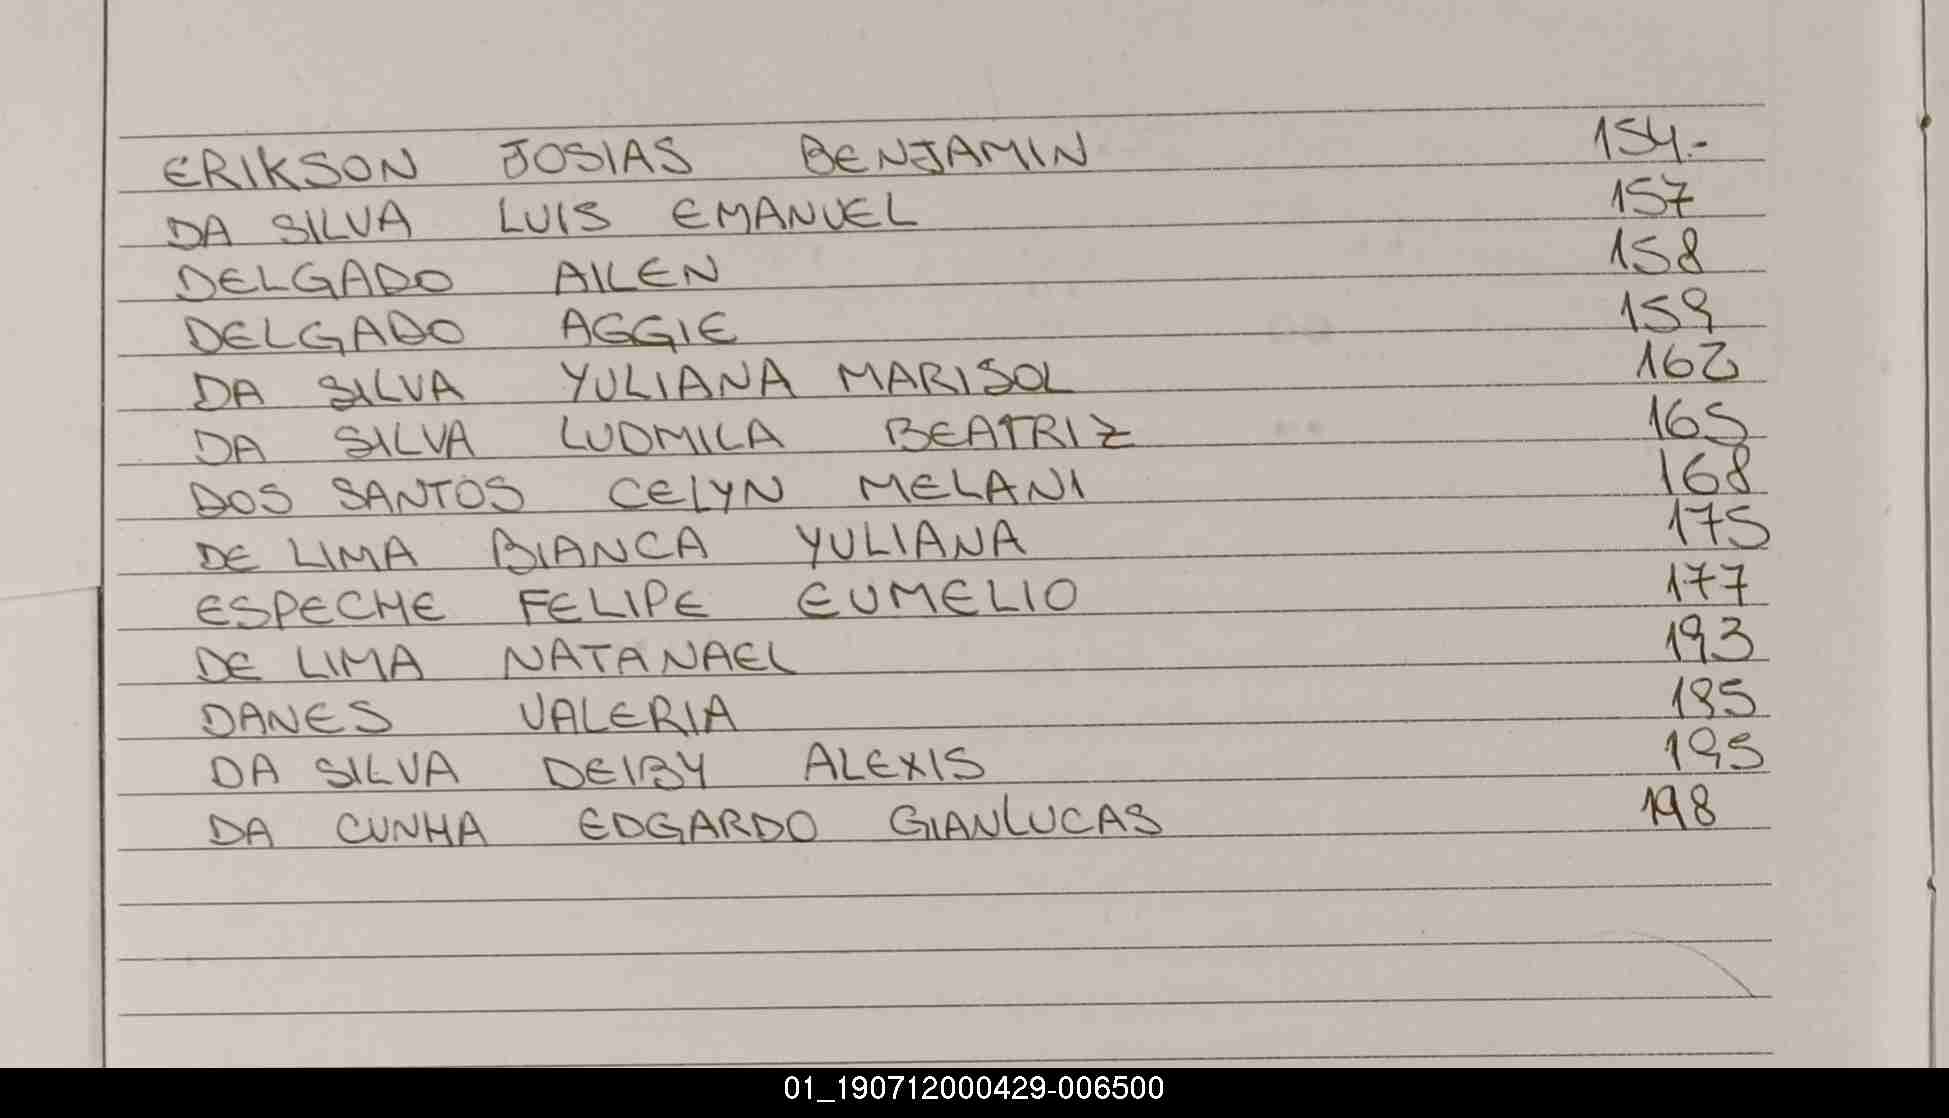 ERIKSON JOSIAS BENJAMIN 154.-
DA SILVA LUIS EMANUEL 157
DELGADO AILEN 158
DELGADO AGGIE 159
DA SILVA YULIANA MARISOL 162
DA SILVA LUDMILA BEATRIZ 165
DOS SANTOS CELYN MELANI 168
DE LIMA BIANCA YULIANA 175
ESPECHE FELIPE EUMELIO 177
DE LIMA NATANAEL 193
DANES VALERIA 195
DA SILVA DEIBY ALEXIS 195
DA CUNHA EDGARDO GIANLUCAS 198
01_190712000429-006500